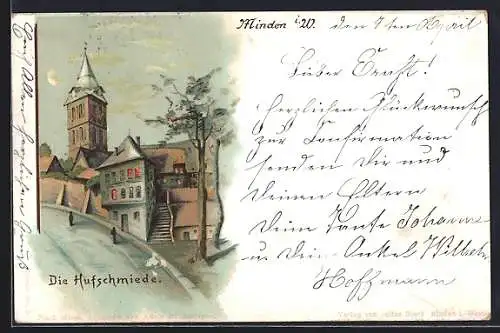 Minden i. W. den 7ten April
Lieber Ernst!
Herzlichen Glückwunsch
zur Confirmation
senden Dir und
Deinen Eltern
Deine Tante Johanne
u Dein Onkel Wilhelm
Hoffmann
Die Hufschmiede.
Verlag von